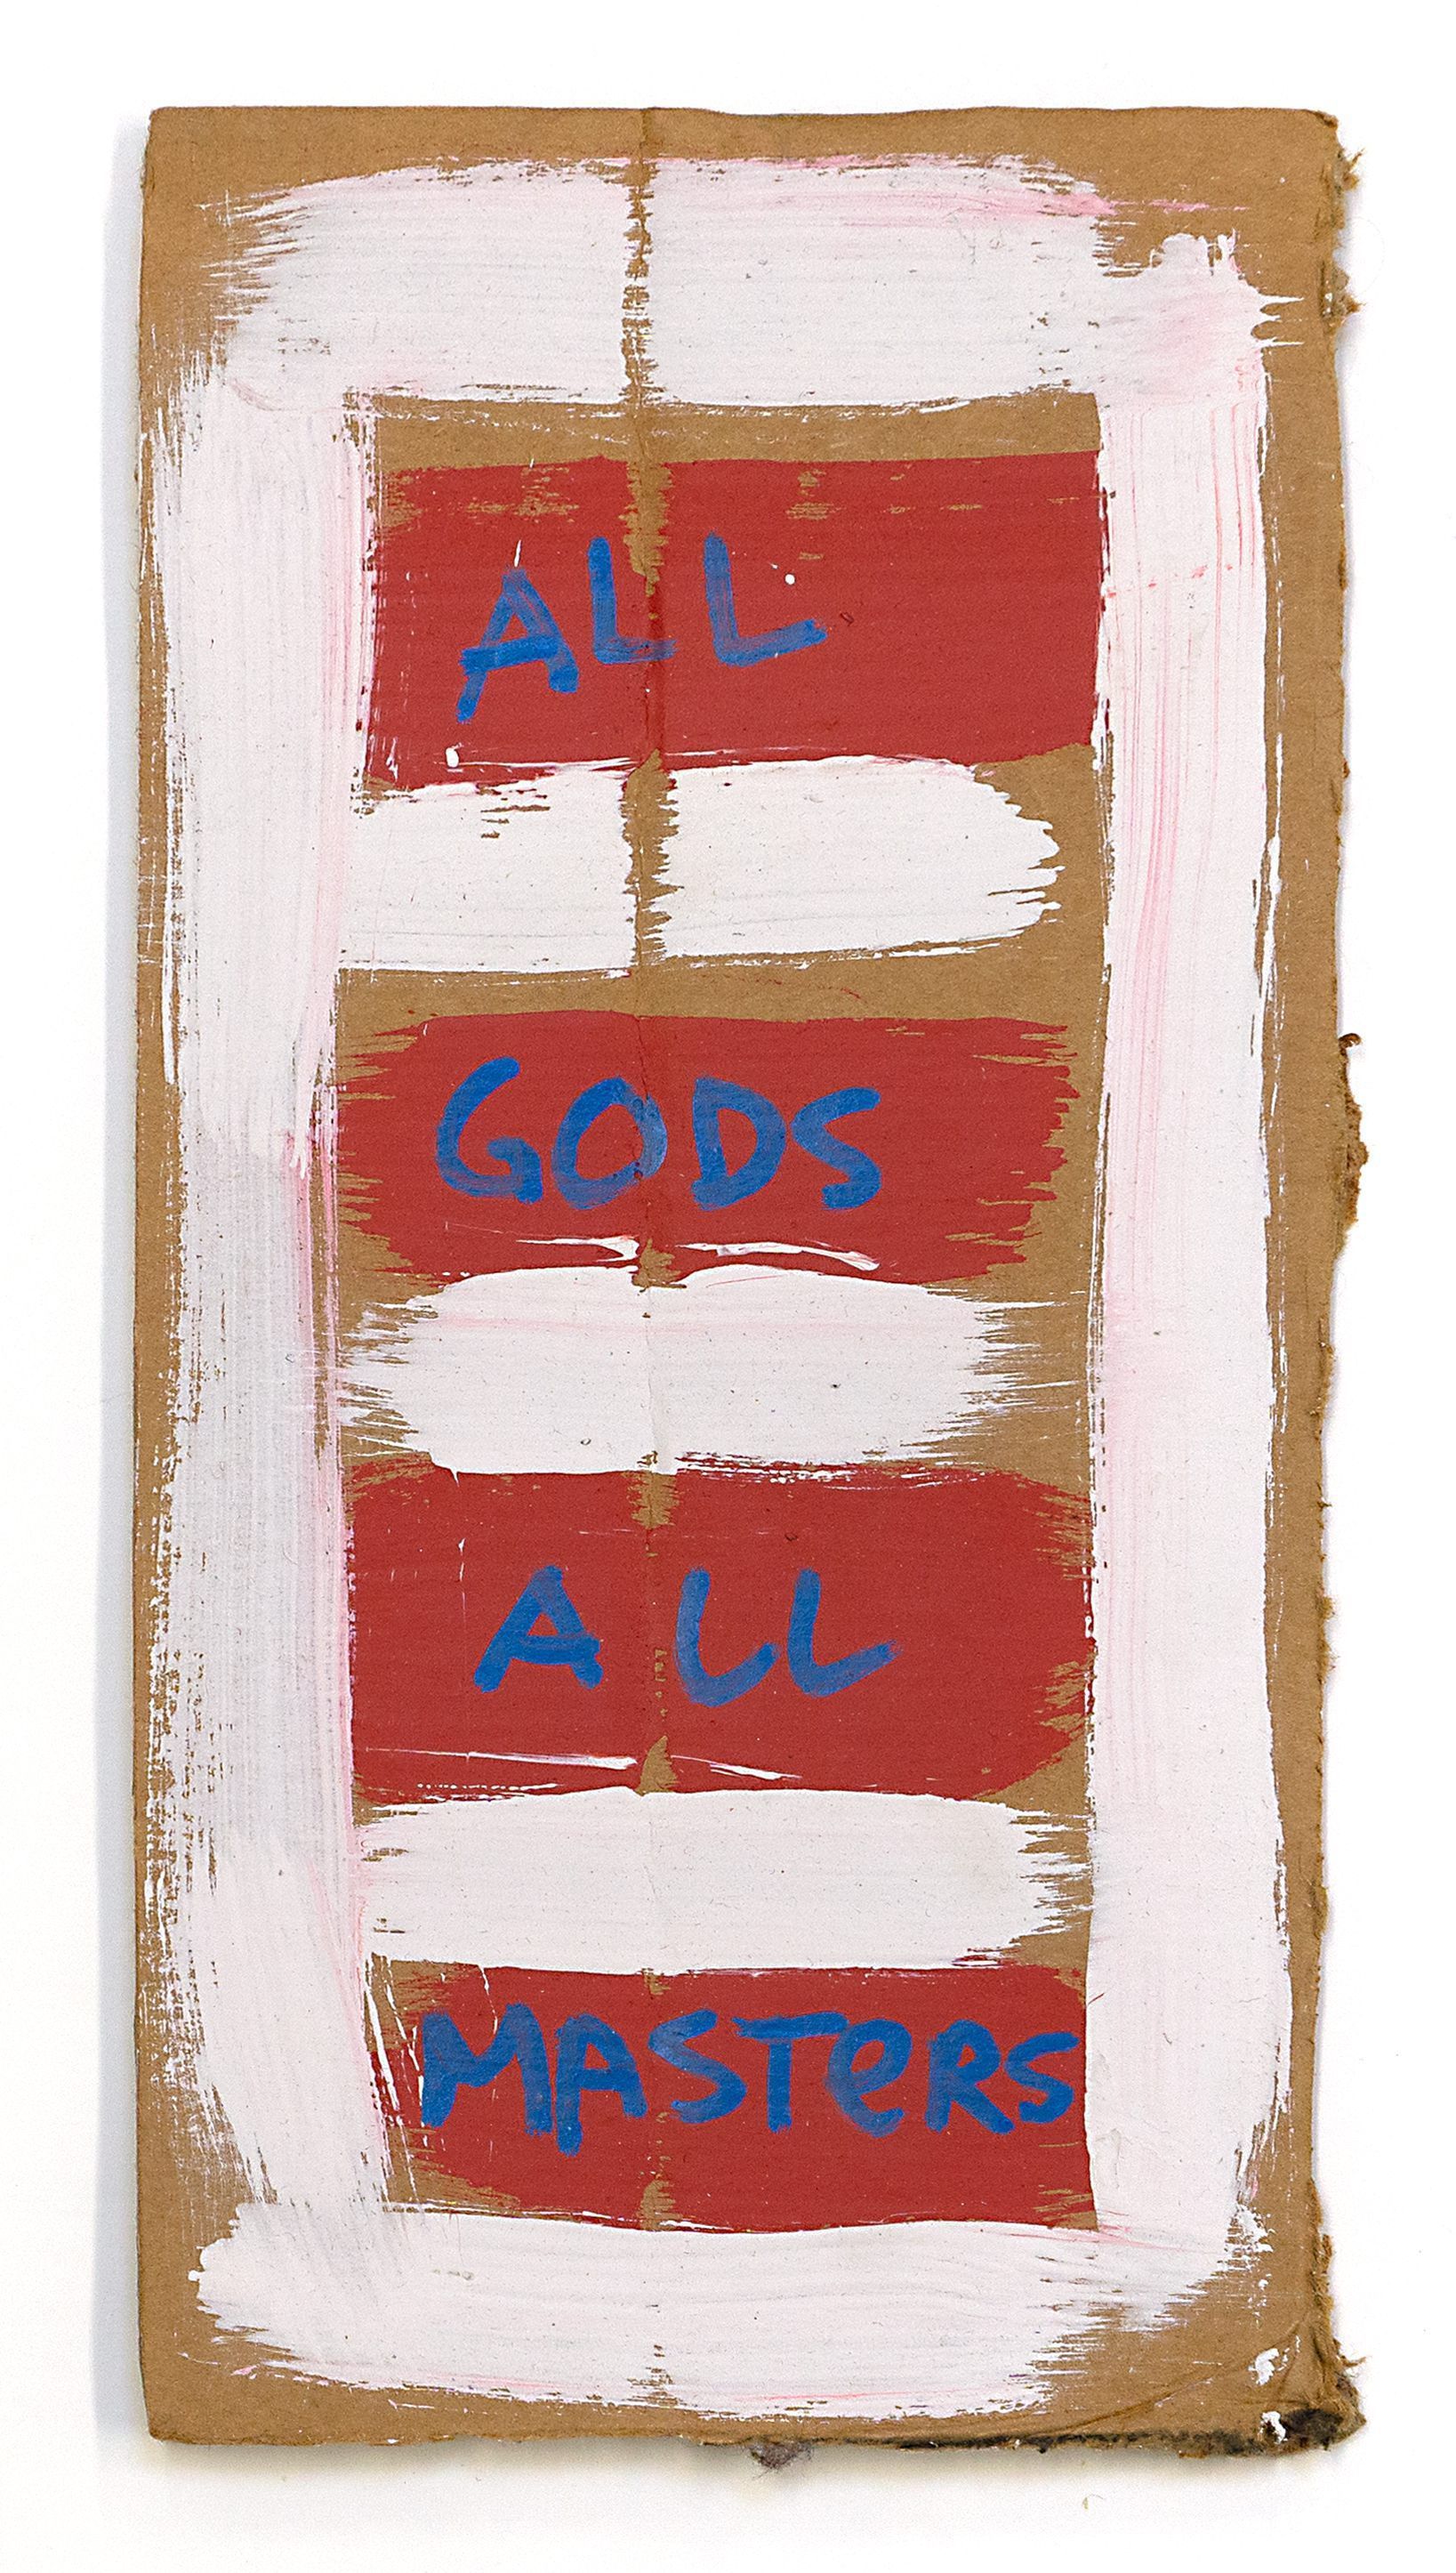 ALL
GODS
ALL
MASTeRS